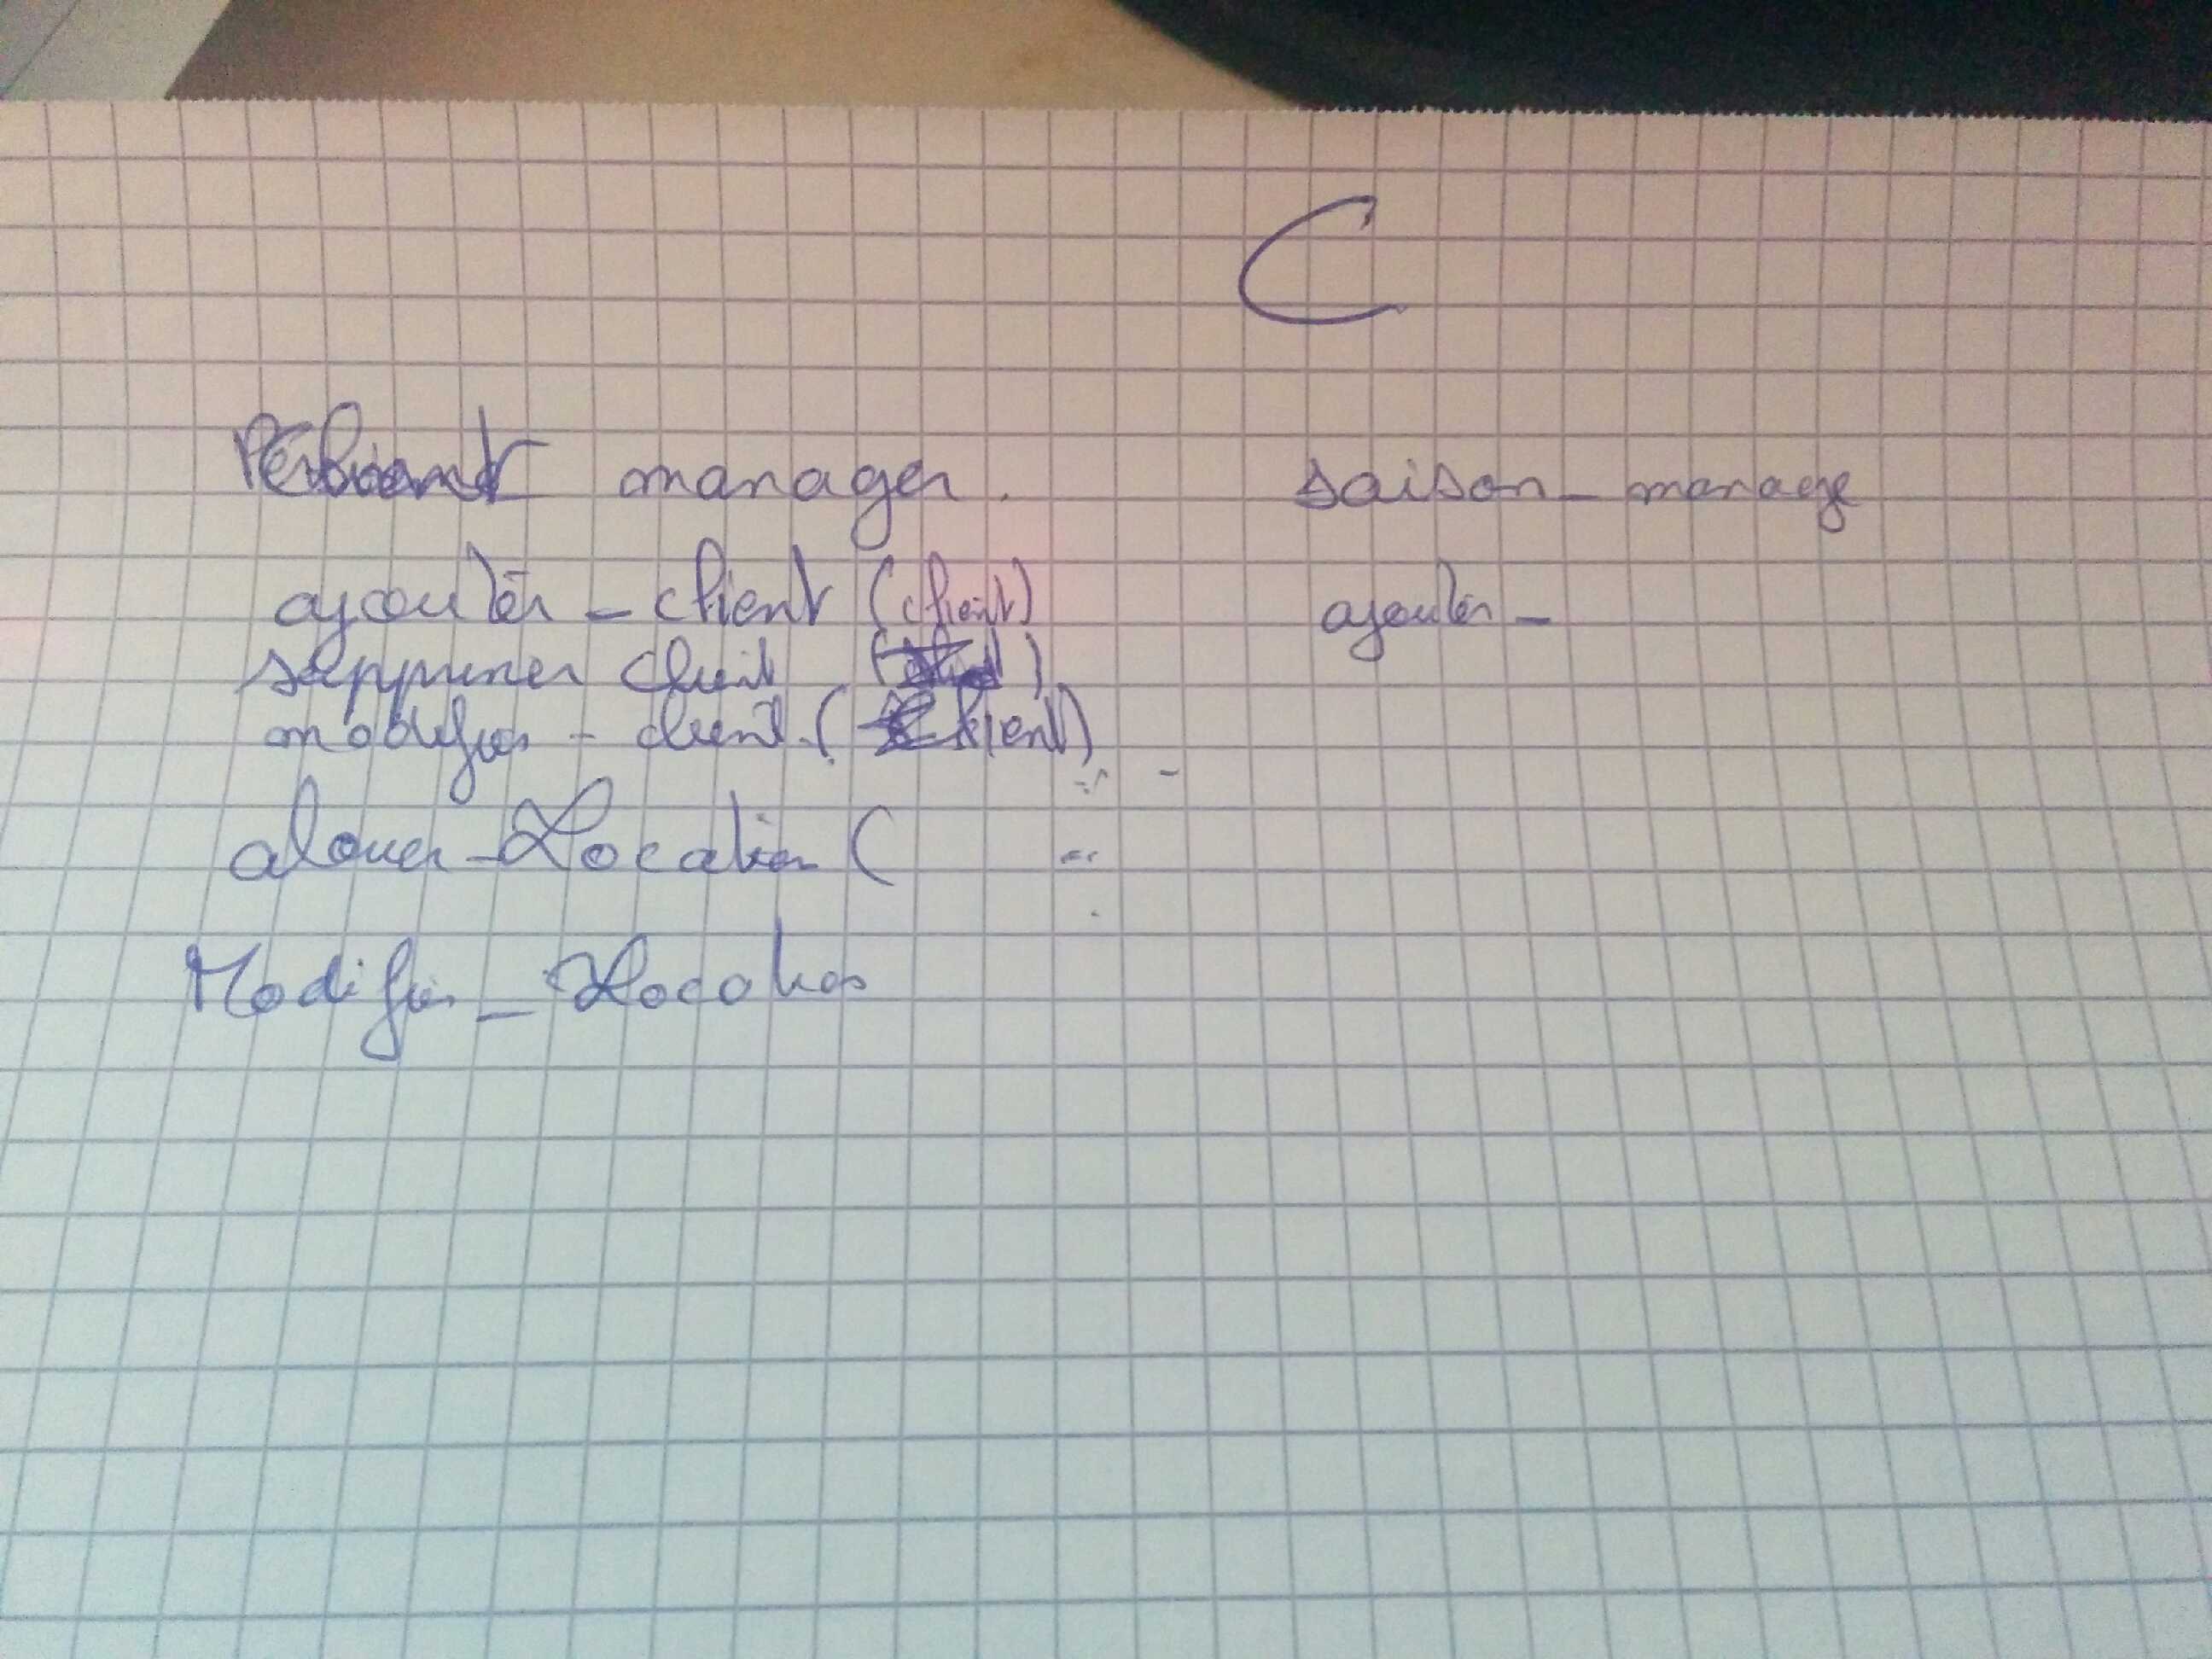 C
manager.
ajouter_client (client)
supprimer client ( )
modifier - client. (client)
alouer_Location (
Modifier_Location
saison_manage
ajouter_